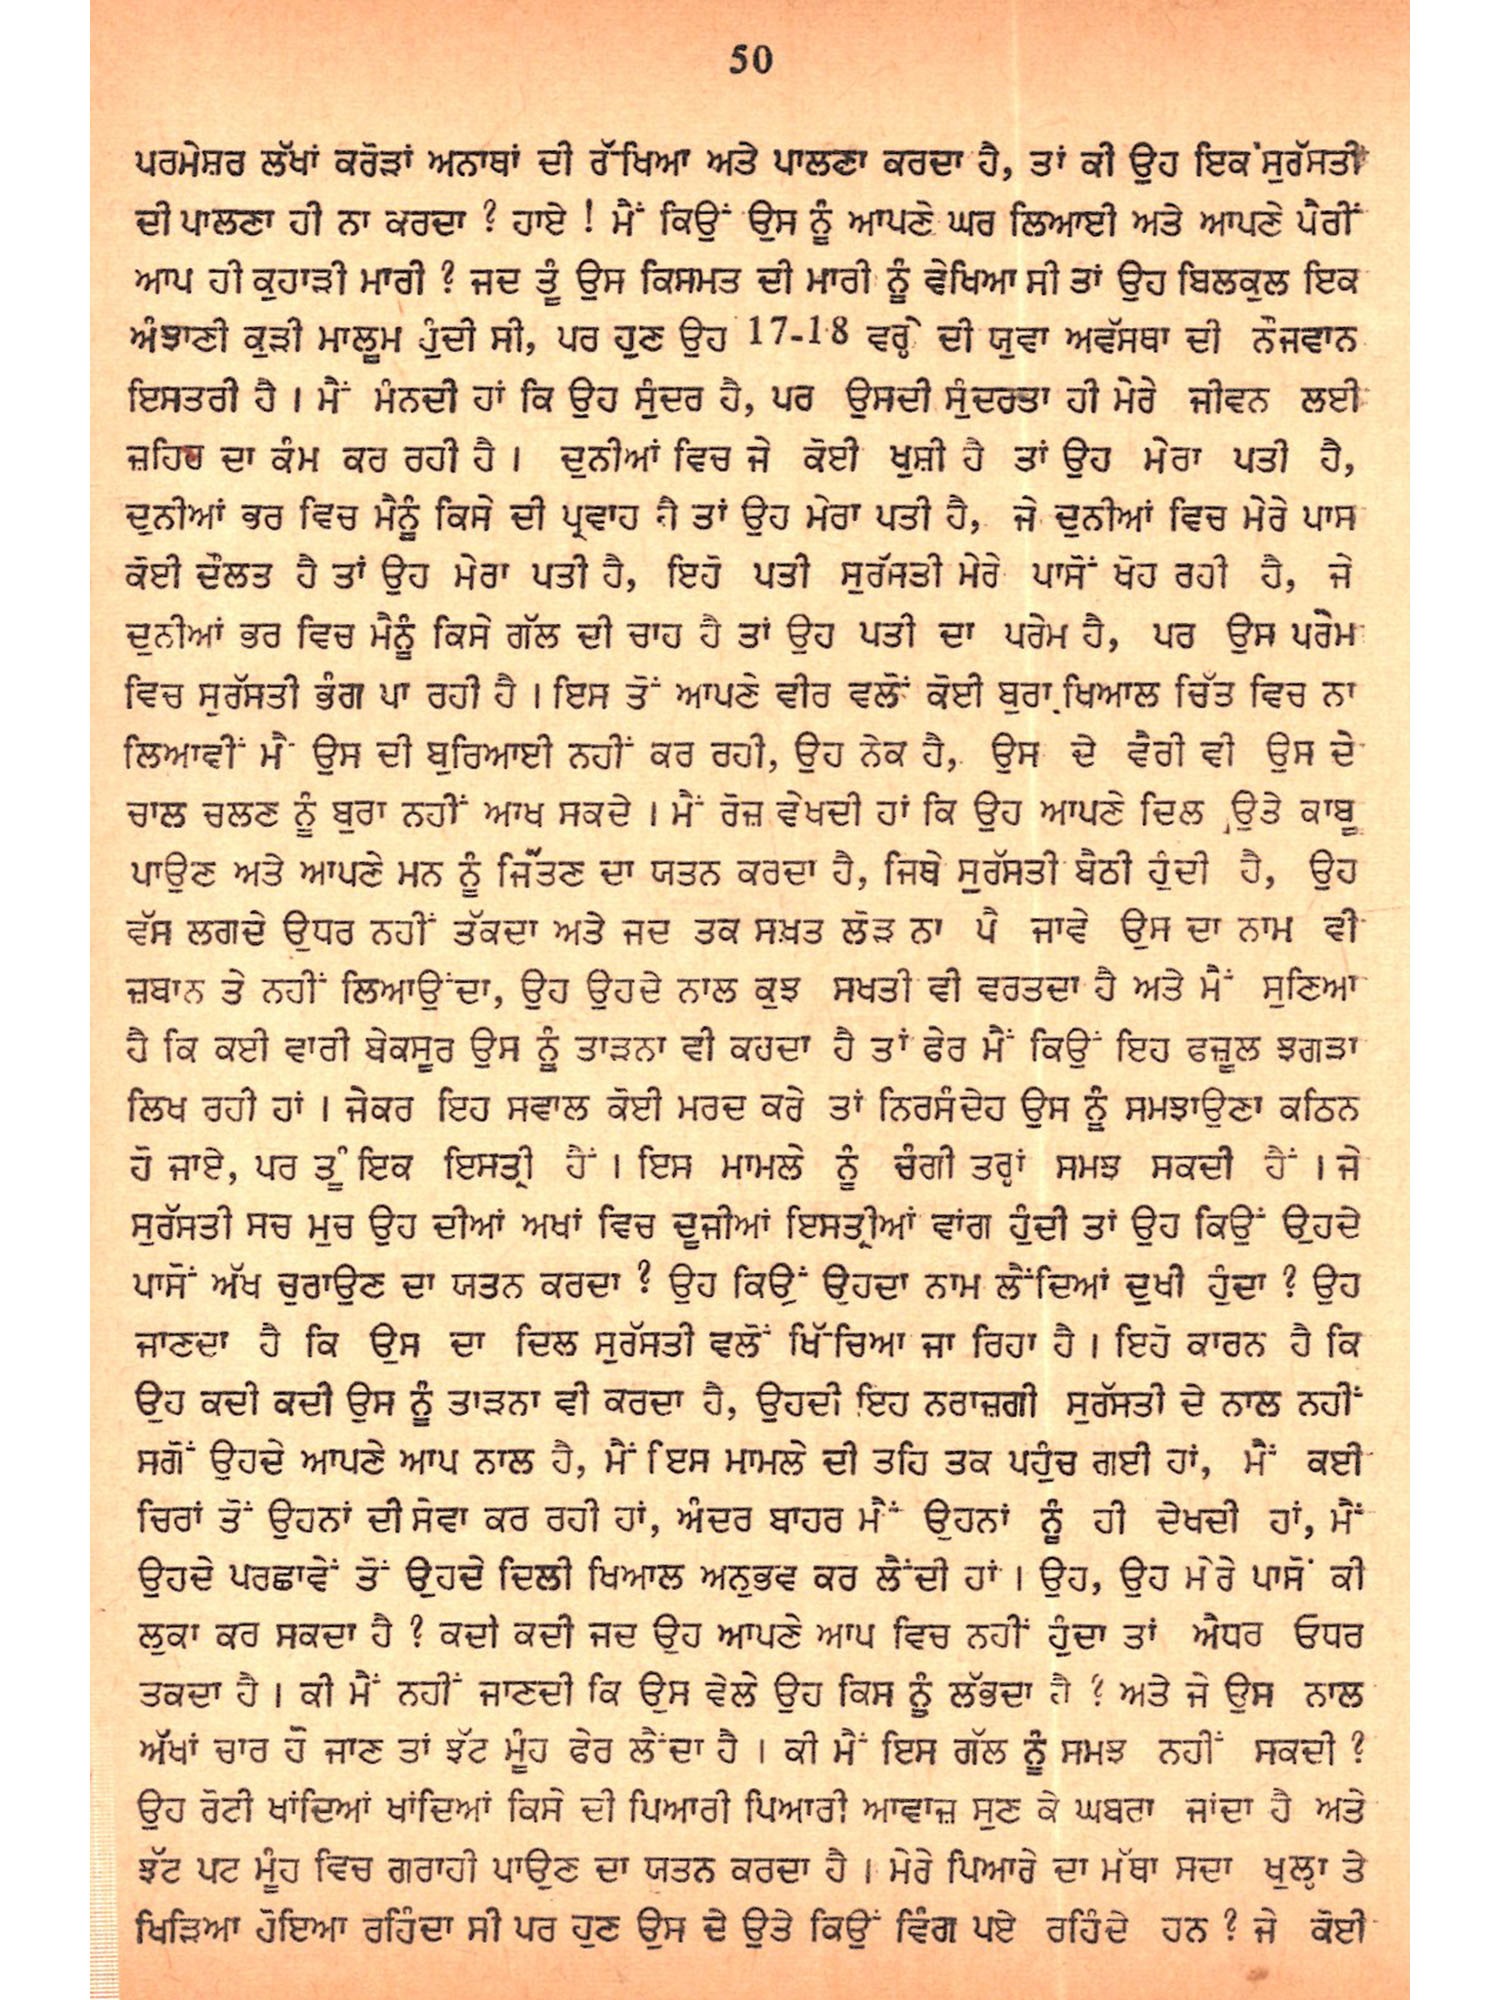 50
ਪਰਮੇਸ਼ਰ ਲੱਖਾਂ ਕਰੋੜਾਂ ਅਨਾਥਾਂ ਦੀ ਰੱਖਿਆ ਅਤੇ ਪਾਲਣਾ ਕਰਦਾ ਹੈ, ਤਾਂ ਕੀ ਉਹ ਇਕ ਸੁਰੱਸਤੀ
ਦੀ ਪਾਲਣਾ ਹੀ ਨਾ ਕਰਦਾ ? ਹਾਏ ! ਮੈਂ ਕਿਉਂ ਉਸ ਨੂੰ ਆਪਣੇ ਘਰ ਲਿਆਈ ਅਤੇ ਆਪਣੇ ਪੈਰੀਂ
ਆਪ ਹੀ ਕੁਹਾੜੀ ਮਾਰੀ ? ਜਦ ਤੂੰ ਉਸ ਕਿਸਮਤ ਦੀ ਮਾਰੀ ਨੂੰ ਵੇਖਿਆ ਸੀ ਤਾਂ ਉਹ ਬਿਲਕੁਲ ਇਕ
ਅੰਝਾਣੀ ਕੁੜੀ ਮਾਲੂਮ ਹੁੰਦੀ ਸੀ, ਪਰ ਹੁਣ ਉਹ 17-18 ਵਰ੍ਹੇ ਦੀ ਯੁਵਾ ਅਵੱਸਥਾ ਦੀ ਨੌਜਵਾਨ
ਇਸਤਰੀ ਹੈ । ਮੈਂ ਮੰਨਦੀ ਹਾਂ ਕਿ ਉਹ ਸੁੰਦਰ ਹੈ, ਪਰ ਉਸਦੀ ਸੁੰਦਰਤਾ ਹੀ ਮੇਰੇ ਜੀਵਨ ਲਈ
ਜ਼ਹਿਰ ਦਾ ਕੰਮ ਕਰ ਰਹੀ ਹੈ । ਦੁਨੀਆਂ ਵਿਚ ਜੇ ਕੋਈ ਖੁਸ਼ੀ ਹੈ ਤਾਂ ਉਹ ਮੇਰਾ ਪਤੀ ਹੈ,
ਦੁਨੀਆਂ ਭਰ ਵਿਚ ਮੈਨੂੰ ਕਿਸੇ ਦੀ ਪ੍ਰਵਾਹ ਹੈ ਤਾਂ ਉਹ ਮੇਰਾ ਪਤੀ ਹੈ, ਜੇ ਦੁਨੀਆਂ ਵਿਚ ਮੇਰੇ ਪਾਸ
ਕੋਈ ਦੌਲਤ ਹੈ ਤਾਂ ਉਹ ਮੇਰਾ ਪਤੀ ਹੈ, ਇਹੋ ਪਤੀ ਸੁਰੱਸਤੀ ਮੇਰੇ ਪਾਸੋਂ ਖੋਹ ਰਹੀ ਹੈ, ਜੇ
ਦੁਨੀਆਂ ਭਰ ਵਿਚ ਮੈਨੂੰ ਕਿਸੇ ਗੱਲ ਦੀ ਚਾਹ ਹੈ ਤਾਂ ਉਹ ਪਤੀ ਦਾ ਪਰੇਮ ਹੈ, ਪਰ ਉਸ ਪਰੇਮ
ਵਿਚ ਸੁਰੱਸਤੀ ਭੰਗ ਪਾ ਰਹੀ ਹੈ । ਇਸ ਤੋਂ ਆਪਣੇ ਵੀਰ ਵਲੋਂ ਕੋਈ ਬੁਰਾ ਖਿਆਲ ਚਿੱਤ ਵਿਚ ਨਾ
ਲਿਆਵੀਂ ਮੈਂ ਉਸ ਦੀ ਬੁਰਿਆਈ ਨਹੀਂ ਕਰ ਰਹੀ, ਉਹ ਨੇਕ ਹੈ, ਉਸ ਦੇ ਵੈਰੀ ਵੀ ਉਸ ਦੇ
ਚਾਲ ਚਲਣ ਨੂੰ ਬੁਰਾ ਨਹੀਂ ਆਖ ਸਕਦੇ । ਮੈਂ ਰੋਜ਼ ਵੇਖਦੀ ਹਾਂ ਕਿ ਉਹ ਆਪਣੇ ਦਿਲ ਉਤੇ ਕਾਬੂ
ਪਾਉਣ ਅਤੇ ਆਪਣੇ ਮਨ ਨੂੰ ਜਿੱਤਣ ਦਾ ਯਤਨ ਕਰਦਾ ਹੈ, ਜਿਥੇ ਸੁਰੱਸਤੀ ਬੈਠੀ ਹੁੰਦੀ ਹੈ, ਉਹ
ਵੱਸ ਲਗਦੇ ਉਧਰ ਨਹੀਂ ਤੱਕਦਾ ਅਤੇ ਜਦ ਤਕ ਸਖ਼ਤ ਲੋੜ ਨਾ ਪੈ ਜਾਵੇ ਉਸ ਦਾ ਨਾਮ ਵੀ
ਜ਼ਬਾਨ ਤੇ ਨਹੀਂ ਲਿਆਉਂਦਾ, ਉਹ ਉਹਦੇ ਨਾਲ ਕੁਝ ਸਖਤੀ ਵੀ ਵਰਤਦਾ ਹੈ ਅਤੇ ਮੈਂ ਸੁਣਿਆ
ਹੈ ਕਿ ਕਈ ਵਾਰੀ ਬੇਕਸੂਰ ਉਸ ਨੂੰ ਤਾੜਨਾ ਵੀ ਕਰਦਾ ਹੈ ਤਾਂ ਫੇਰ ਮੈਂ ਕਿਉਂ ਇਹ ਫਜ਼ੂਲ ਝਗੜਾ
ਲਿਖ ਰਹੀ ਹਾਂ । ਜੇਕਰ ਇਹ ਸਵਾਲ ਕੋਈ ਮਰਦ ਕਰੇ ਤਾਂ ਨਿਰਸੰਦੇਹ ਉਸ ਨੂੰ ਸਮਝਾਉਣਾ ਕਠਿਨ
ਹੋ ਜਾਏ, ਪਰ ਤੂੰ ਇਕ ਇਸਤ੍ਰੀ ਹੈਂ । ਇਸ ਮਾਮਲੇ ਨੂੰ ਚੰਗੀ ਤਰ੍ਹਾਂ ਸਮਝ ਸਕਦੀ ਹੈਂ । ਜੇ
ਸੁਰੱਸਤੀ ਸਚ ਮੁਚ ਉਹ ਦੀਆਂ ਅਖਾਂ ਵਿਚ ਦੂਜੀਆਂ ਇਸਤ੍ਰੀਆਂ ਵਾਂਗ ਹੁੰਦੀ ਤਾਂ ਉਹ ਕਿਉਂ ਉਹਦੇ
ਪਾਸੋਂ ਅੱਖ ਚੁਰਾਉਣ ਦਾ ਯਤਨ ਕਰਦਾ ? ਉਹ ਕਿਉਂ ਉਹਦਾ ਨਾਮ ਲੈਂਦਿਆਂ ਦੁਖੀ ਹੁੰਦਾ ? ਉਹ
ਜਾਣਦਾ ਹੈ ਕਿ ਉਸ ਦਾ ਦਿਲ ਸੁਰੱਸਤੀ ਵਲੋਂ ਖਿੱਚਿਆ ਜਾ ਰਿਹਾ ਹੈ । ਇਹੋ ਕਾਰਨ ਹੈ ਕਿ
ਉਹ ਕਦੀ ਕਦੀ ਉਸ ਨੂੰ ਤਾੜਨਾ ਵੀ ਕਰਦਾ ਹੈ, ਉਹਦੀ ਇਹ ਨਰਾਜ਼ਗੀ ਸੁਰੱਸਤੀ ਦੇ ਨਾਲ ਨਹੀਂ
ਸਗੋਂ ਉਹਦੇ ਆਪਣੇ ਆਪ ਨਾਲ ਹੈ, ਮੈਂ ਇਸ ਮਾਮਲੇ ਦੀ ਤਹਿ ਤਕ ਪਹੁੰਚ ਗਈ ਹਾਂ, ਮੈਂ ਕਈ
ਚਿਰਾਂ ਤੋਂ ਉਹਨਾਂ ਦੀ ਸੇਵਾ ਕਰ ਰਹੀ ਹਾਂ, ਅੰਦਰ ਬਾਹਰ ਮੈਂ ਉਹਨਾਂ ਨੂੰ ਹੀ ਦੇਖਦੀ ਹਾਂ, ਮੈਂ
ਉਹਦੇ ਪਰਛਾਵੇਂ ਤੋਂ ਉਹਦੇ ਦਿਲੀ ਖਿਆਲ ਅਨੁਭਵ ਕਰ ਲੈਂਦੀ ਹਾਂ । ਉਹ, ਉਹ ਮੇਰੇ ਪਾਸੋਂ ਕੀ
ਲੁਕਾ ਕਰ ਸਕਦਾ ਹੈ ? ਕਦੀ ਕਦੀ ਜਦ ਉਹ ਆਪਣੇ ਆਪ ਵਿਚ ਨਹੀਂ ਹੁੰਦਾ ਤਾਂ ਐਧਰ ਓਧਰ
ਤਕਦਾ ਹੈ । ਕੀ ਮੈਂ ਨਹੀਂ ਜਾਣਦੀ ਕਿ ਉਸ ਵੇਲੇ ਉਹ ਕਿਸ ਨੂੰ ਲੱਭਦਾ ਹੈ ? ਅਤੇ ਜੇ ਉਸ ਨਾਲ
ਅੱਖਾਂ ਚਾਰ ਹੋ ਜਾਣ ਤਾਂ ਝੱਟ ਮੂੰਹ ਫੇਰ ਲੈਂਦਾ ਹੈ । ਕੀ ਮੈਂ ਇਸ ਗੱਲ ਨੂੰ ਸਮਝ ਨਹੀਂ ਸਕਦੀ ?
ਉਹ ਰੋਟੀ ਖਾਂਦਿਆਂ ਖਾਂਦਿਆਂ ਕਿਸੇ ਦੀ ਪਿਆਰੀ ਪਿਆਰੀ ਆਵਾਜ਼ ਸੁਣ ਕੇ ਘਬਰਾ ਜਾਂਦਾ ਹੈ ਅਤੇ
ਝੱਟ ਪਟ ਮੂੰਹ ਵਿਚ ਗਰਾਹੀ ਪਾਉਣ ਦਾ ਯਤਨ ਕਰਦਾ ਹੈ । ਮੇਰੇ ਪਿਆਰੇ ਦਾ ਮੱਥਾ ਸਦਾ ਖੁਲ੍ਹਾ ਤੇ
ਖਿੜਿਆ ਹੋਇਆ ਰਹਿੰਦਾ ਸੀ ਪਰ ਹੁਣ ਉਸ ਦੇ ਉਤੇ ਕਿਉਂ ਵਿੰਗ ਪਏ ਰਹਿੰਦੇ ਹਨ ? ਜੇ ਕੋਈ